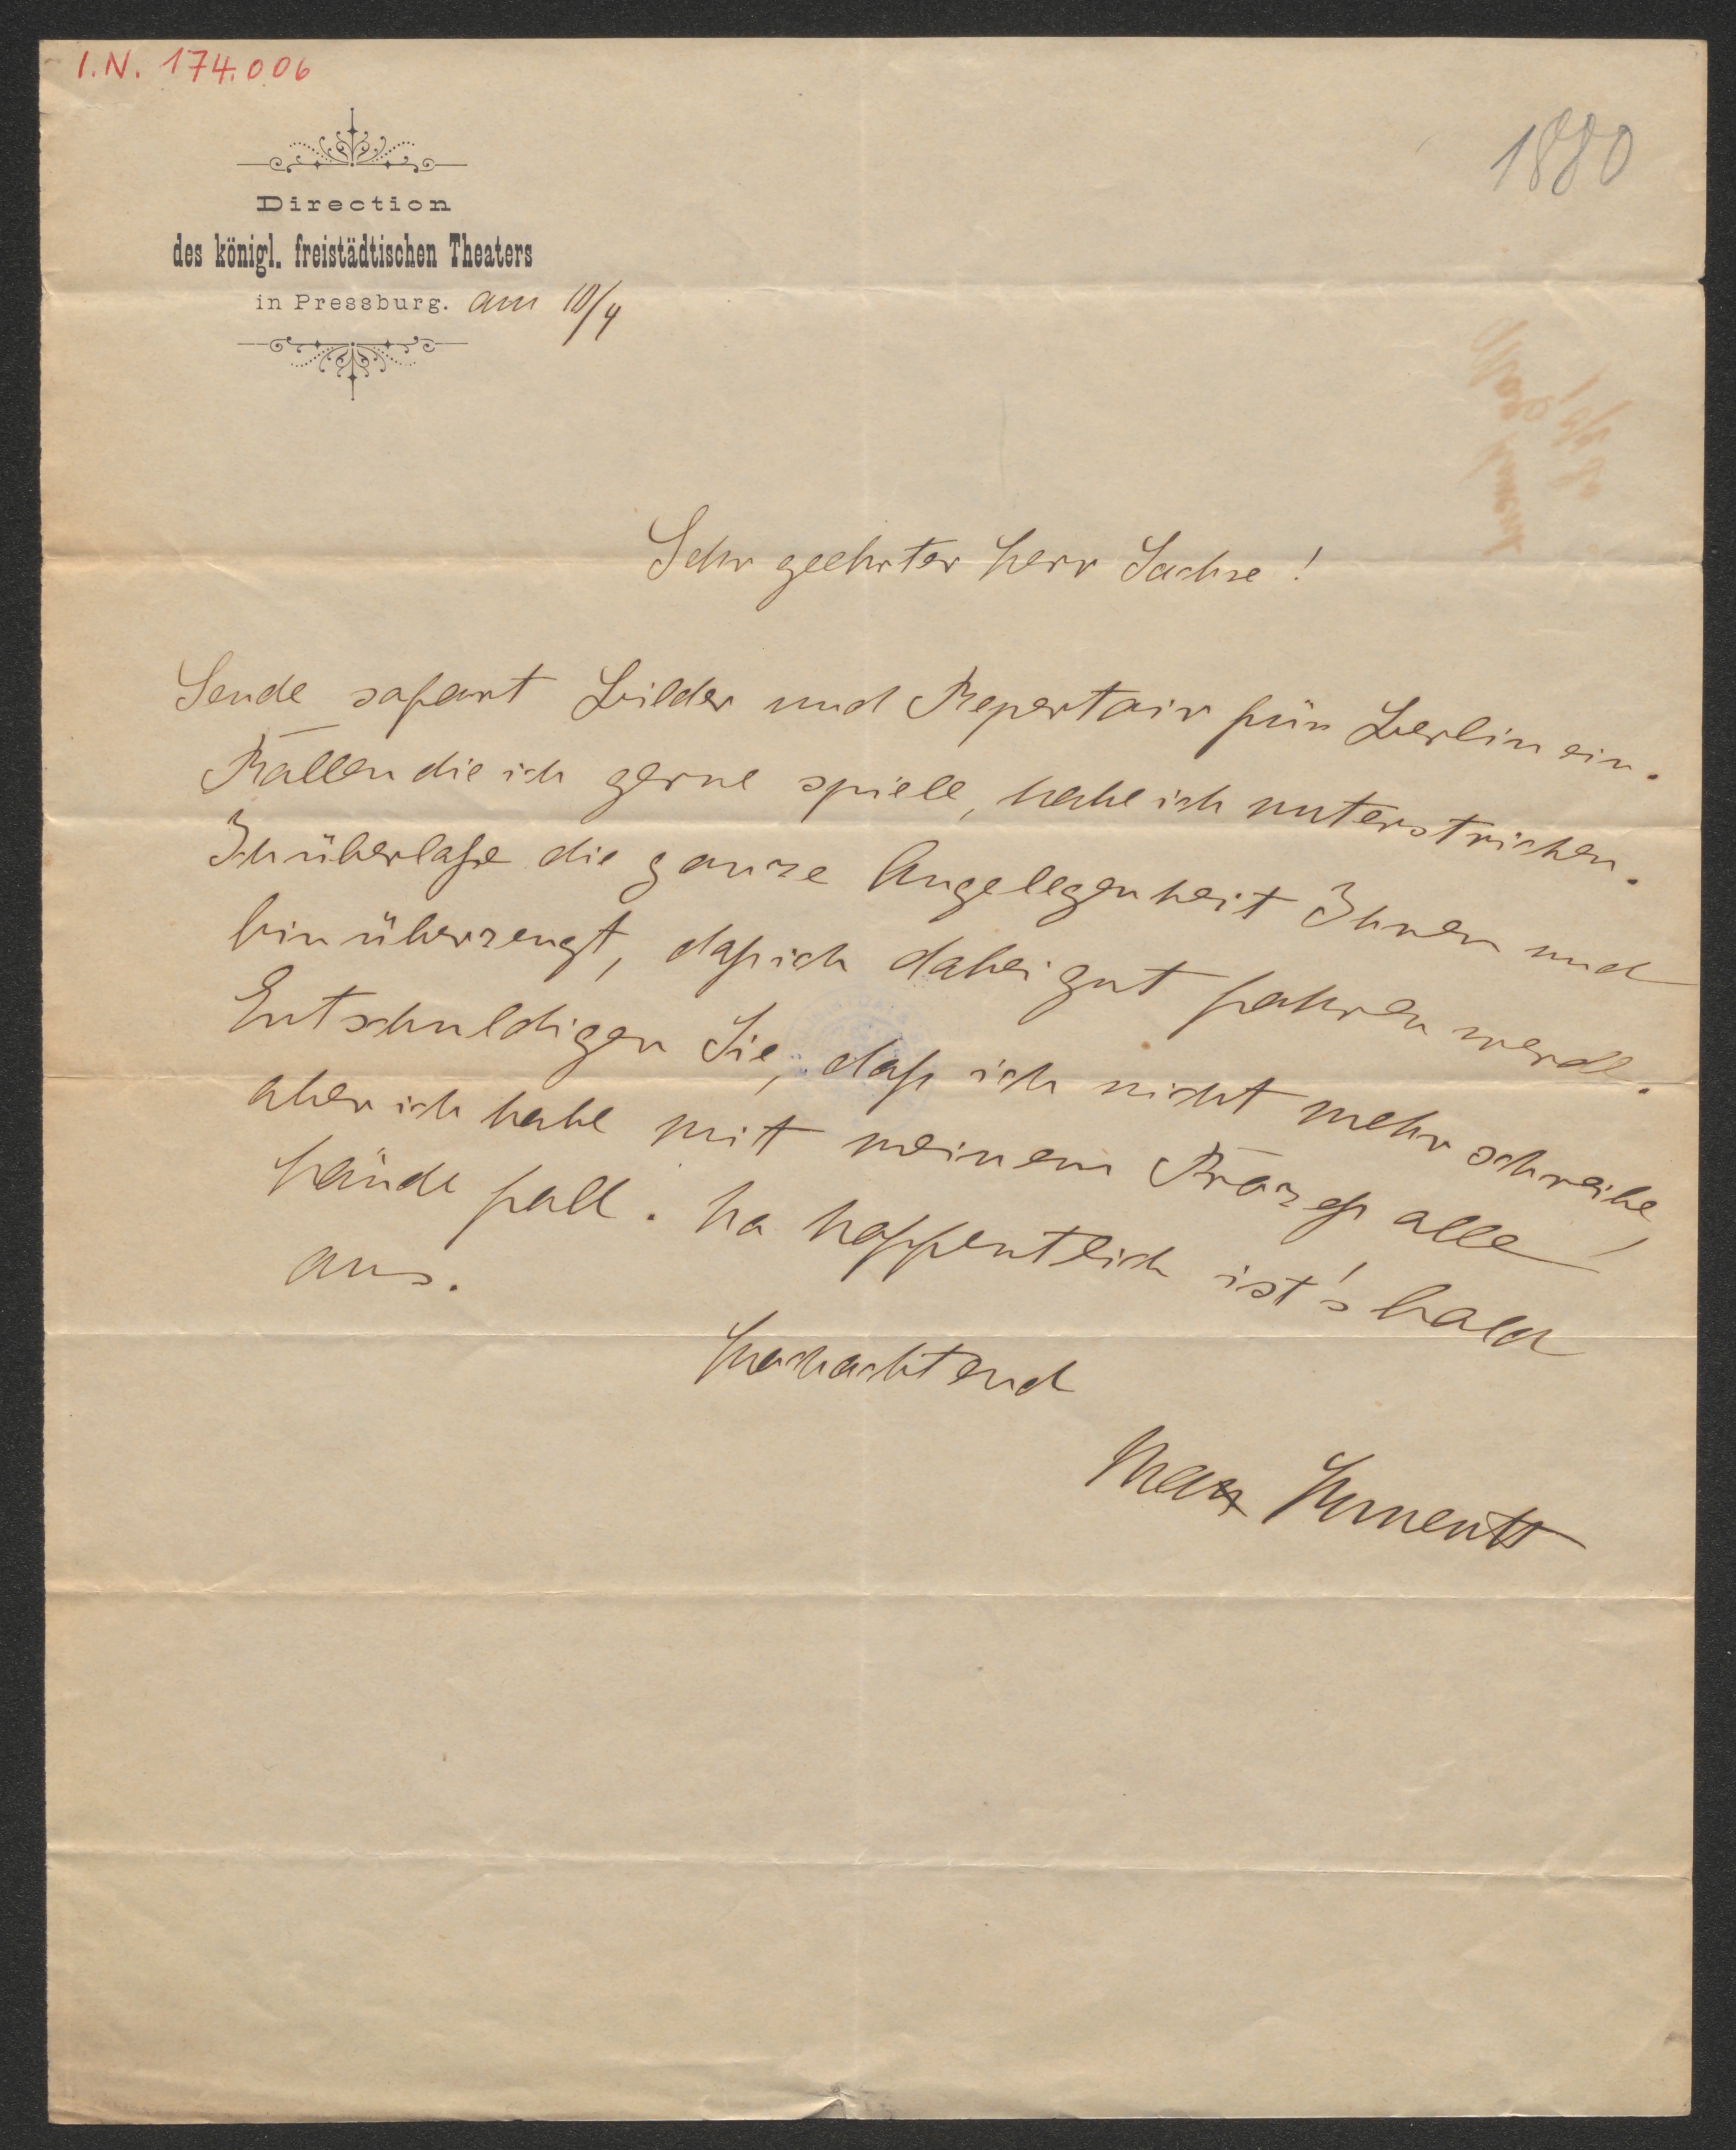 I.N. 174.006
1880
Direction
des königl. freistädtischen Theaters
in Pressburg. am 10/4
Sehr geehrter Herr Sachse!
Sende sofort Bilder und Repertoir für Berlin ein.
Rollen die ich gerne spiele, habe ich unterstrichen.
Ich überlaße die ganze Angelegenheit Ihnen und
bin überzeugt, daß ich dabei gut fahren werde.
Entschuldigen Sie, daß ich nicht mehr schreibe,
aber ich habe mit meinem Prozeß alle
Hände voll. Na hoffentlich ist's bald
aus.
Hochachtend
Max